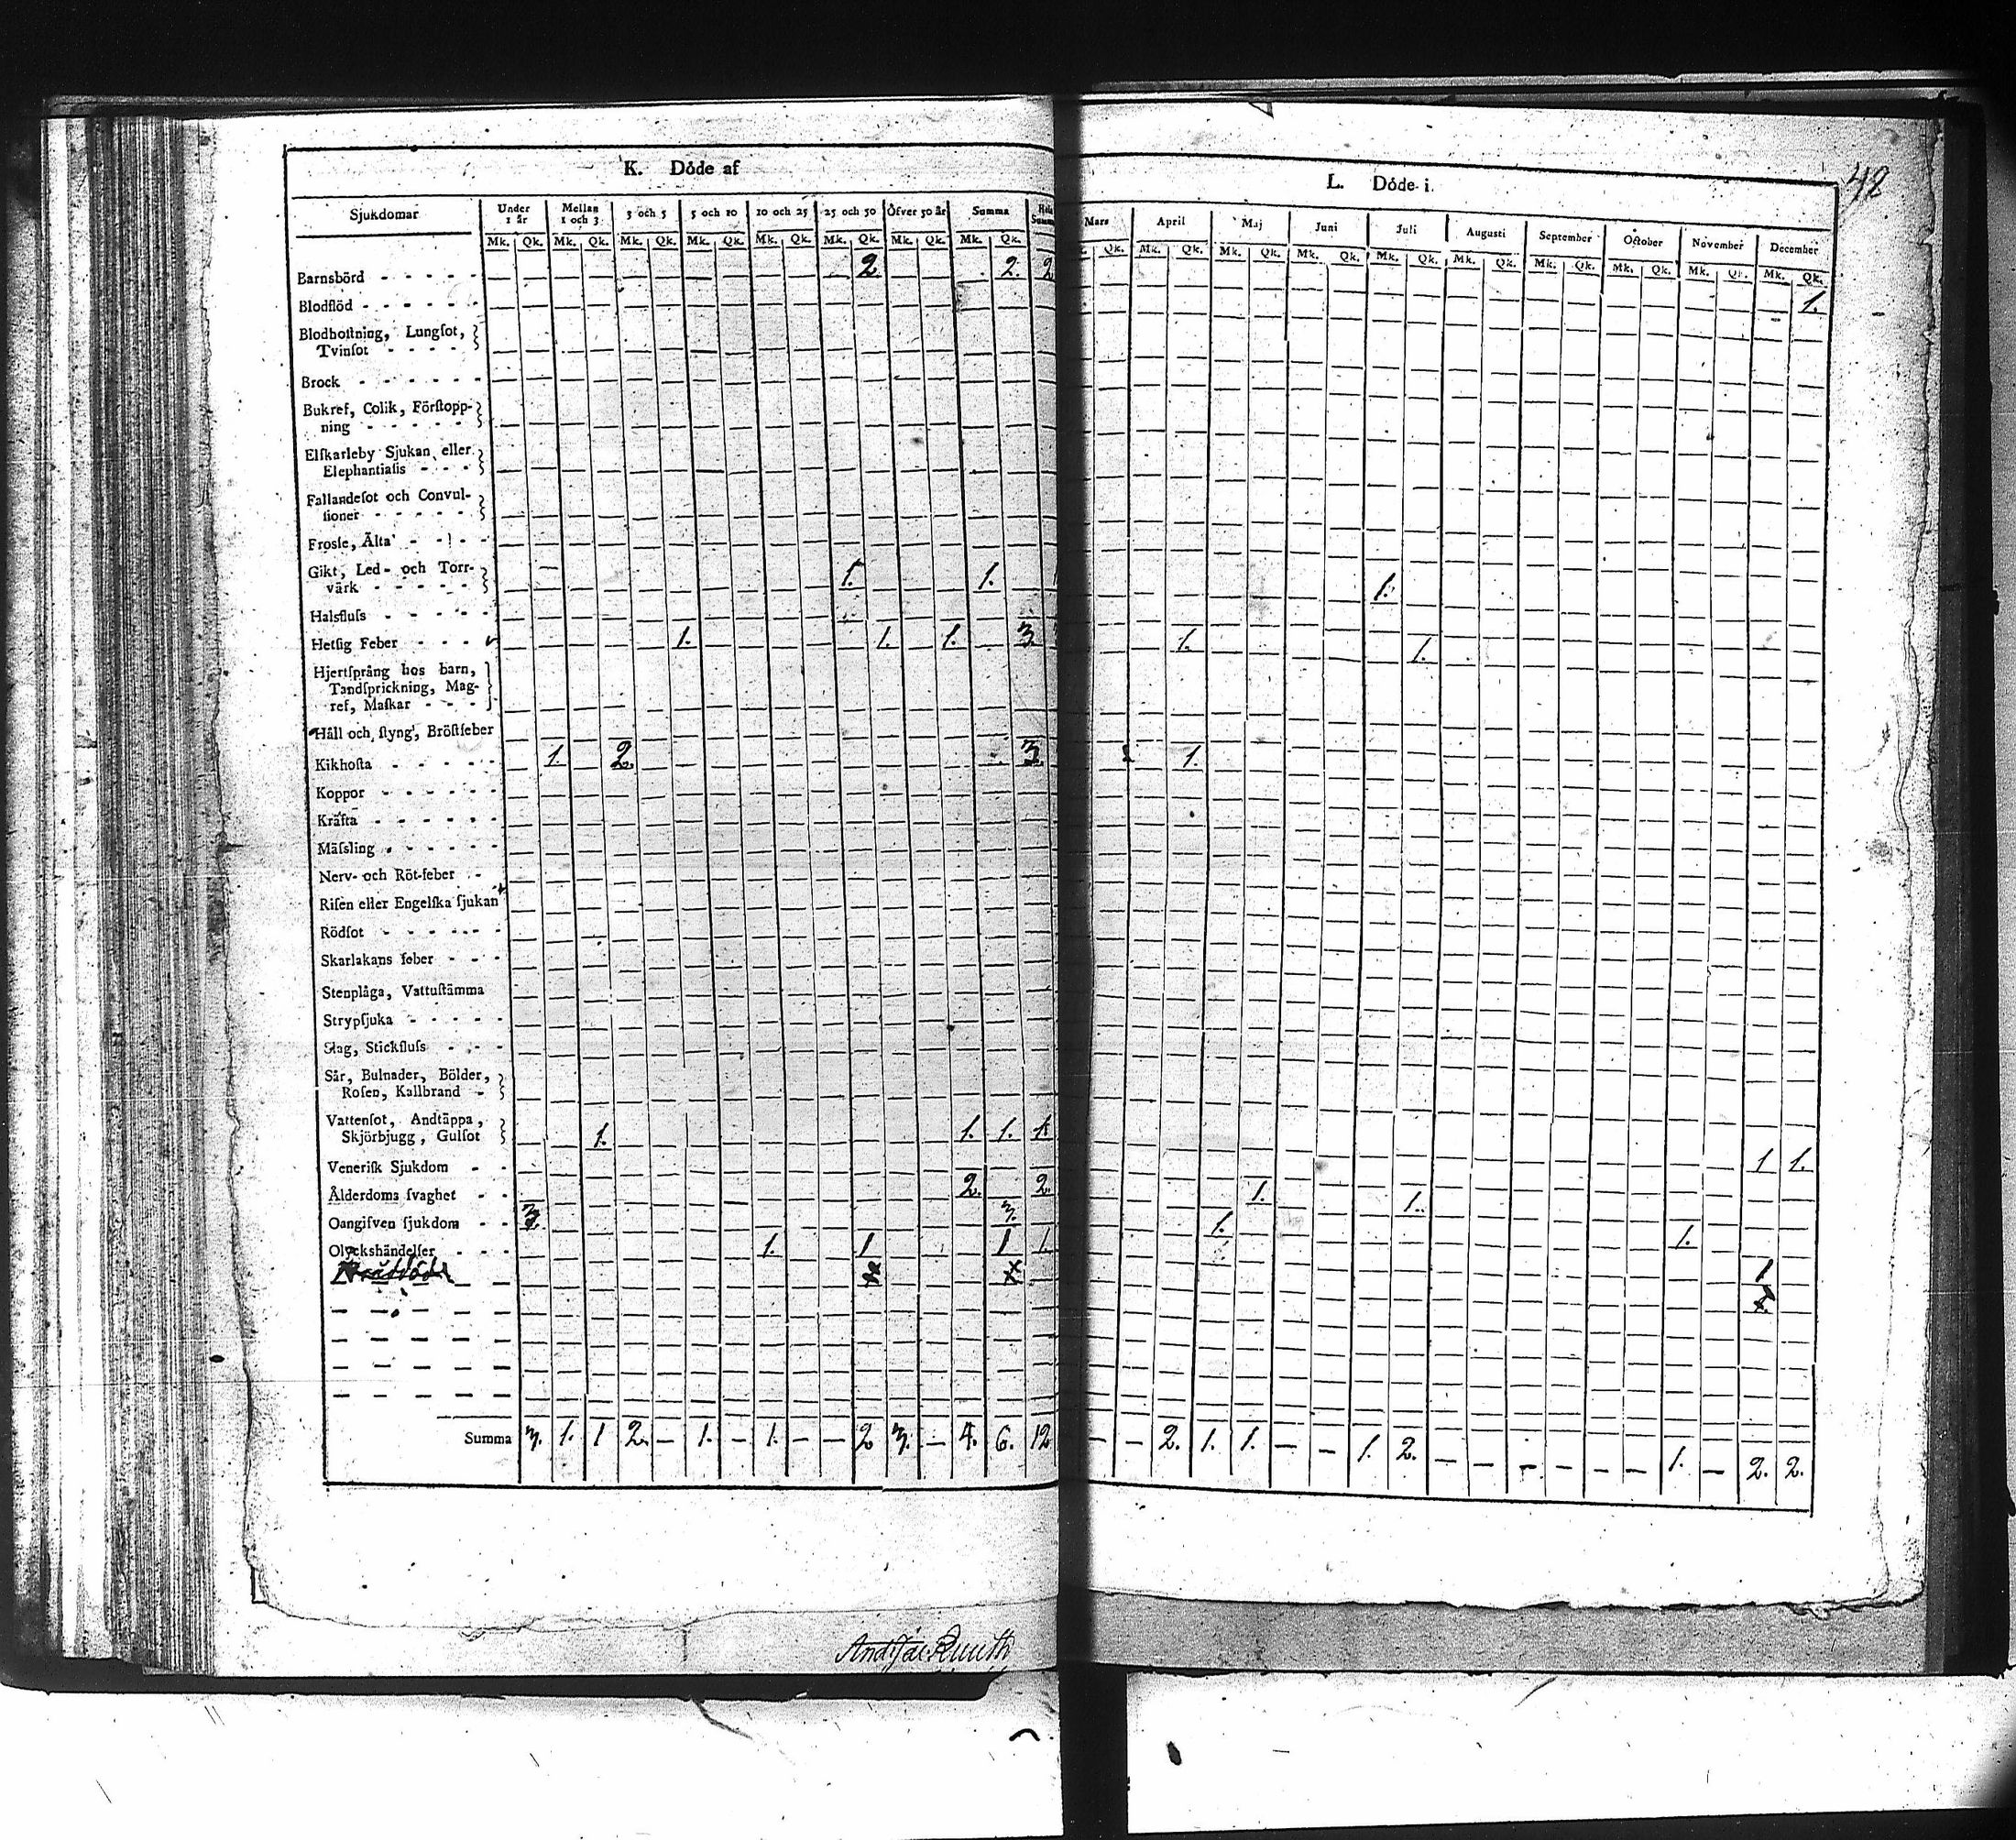 K. Döde af
Sjukdomar Under 1 år Mellan 1 och 3 3 och 5 5 och 10 10 och 25 25 och 50 Öfver 50 år Summa Hela Summa
Mk. Qk. Mk. Qk. Mk. Qk. Mk. Qk. Mk. Qk. Mk. Qk. Mk. Qk. Mk. Qk.
Barnsbörd - - - - - 2 2. 2
Blodflöd - - - - -
Blodhoſtning, Lungſot,
Tvinſot - - - -
Brock - - - - - -
Bukref, Colik, Förſtopp-
ning - - - - -
Elſkarleby Sjukan eller
Elephantiaſis - - -
Fallandeſot och Convul-
ſioner - - - - -
Froſle, Älta - - - -
Gikt, Led- och Torr-
värk - - - - - 1. 1.
Halsfluſs - - - - -
Hetſig Feber - - - 1. 1. 1. 3.
Hjertſprång hos barn,
Tandſprickning, Mag-
ref, Maſkar - - -
Håll och ſtyng, Bröſtfeber
Kikhoſta - - - - - 1. 2. 3.
Koppor - - - - - -
Kräfta - - - - - -
Mäſsling - - - - -
Nerv- och Röt-feber -
Riſen eller Engelſka ſjukan
Rödſot - - - - - -
Skarlakans feber - - -
Stenplåga, Vattuſtämma
Strypſjuka - - - - -
Slag, Stickfluſs - - -
Sår, Bulnader, Bölder,
Roſen, Kallbrand -
Vattenſot, Andtäppa,
Skjörbjugg, Gulſot 1. 1. 1. 1.
Veneriſk Sjukdom - -
Ålderdoms ſvaghet - - 2. 2.
Oangifven ſjukdom - - 3. 3.
Olyckshändelſer - - - 1. 1 1 1.
Summa 3. 1. 1 2. — 1. — 1. — — 2 3. — 4. 6. 12
L. Döde i
42
Mars April Maj Juni Juli Auguſti September October November December
Qk. Mk. Qk. Mk. Qk. Mk. Qk. Mk. Qk. Mk. Qk. Mk. Qk. Mk. Qk. Mk. Qk. Mk. Qk.
1.
1.
1. 1.
1.
1 1.
1. 1.
1. 1.
1
— — 2. 1. 1. — — 1. 2. — — — — — — 1. — 2. 2.